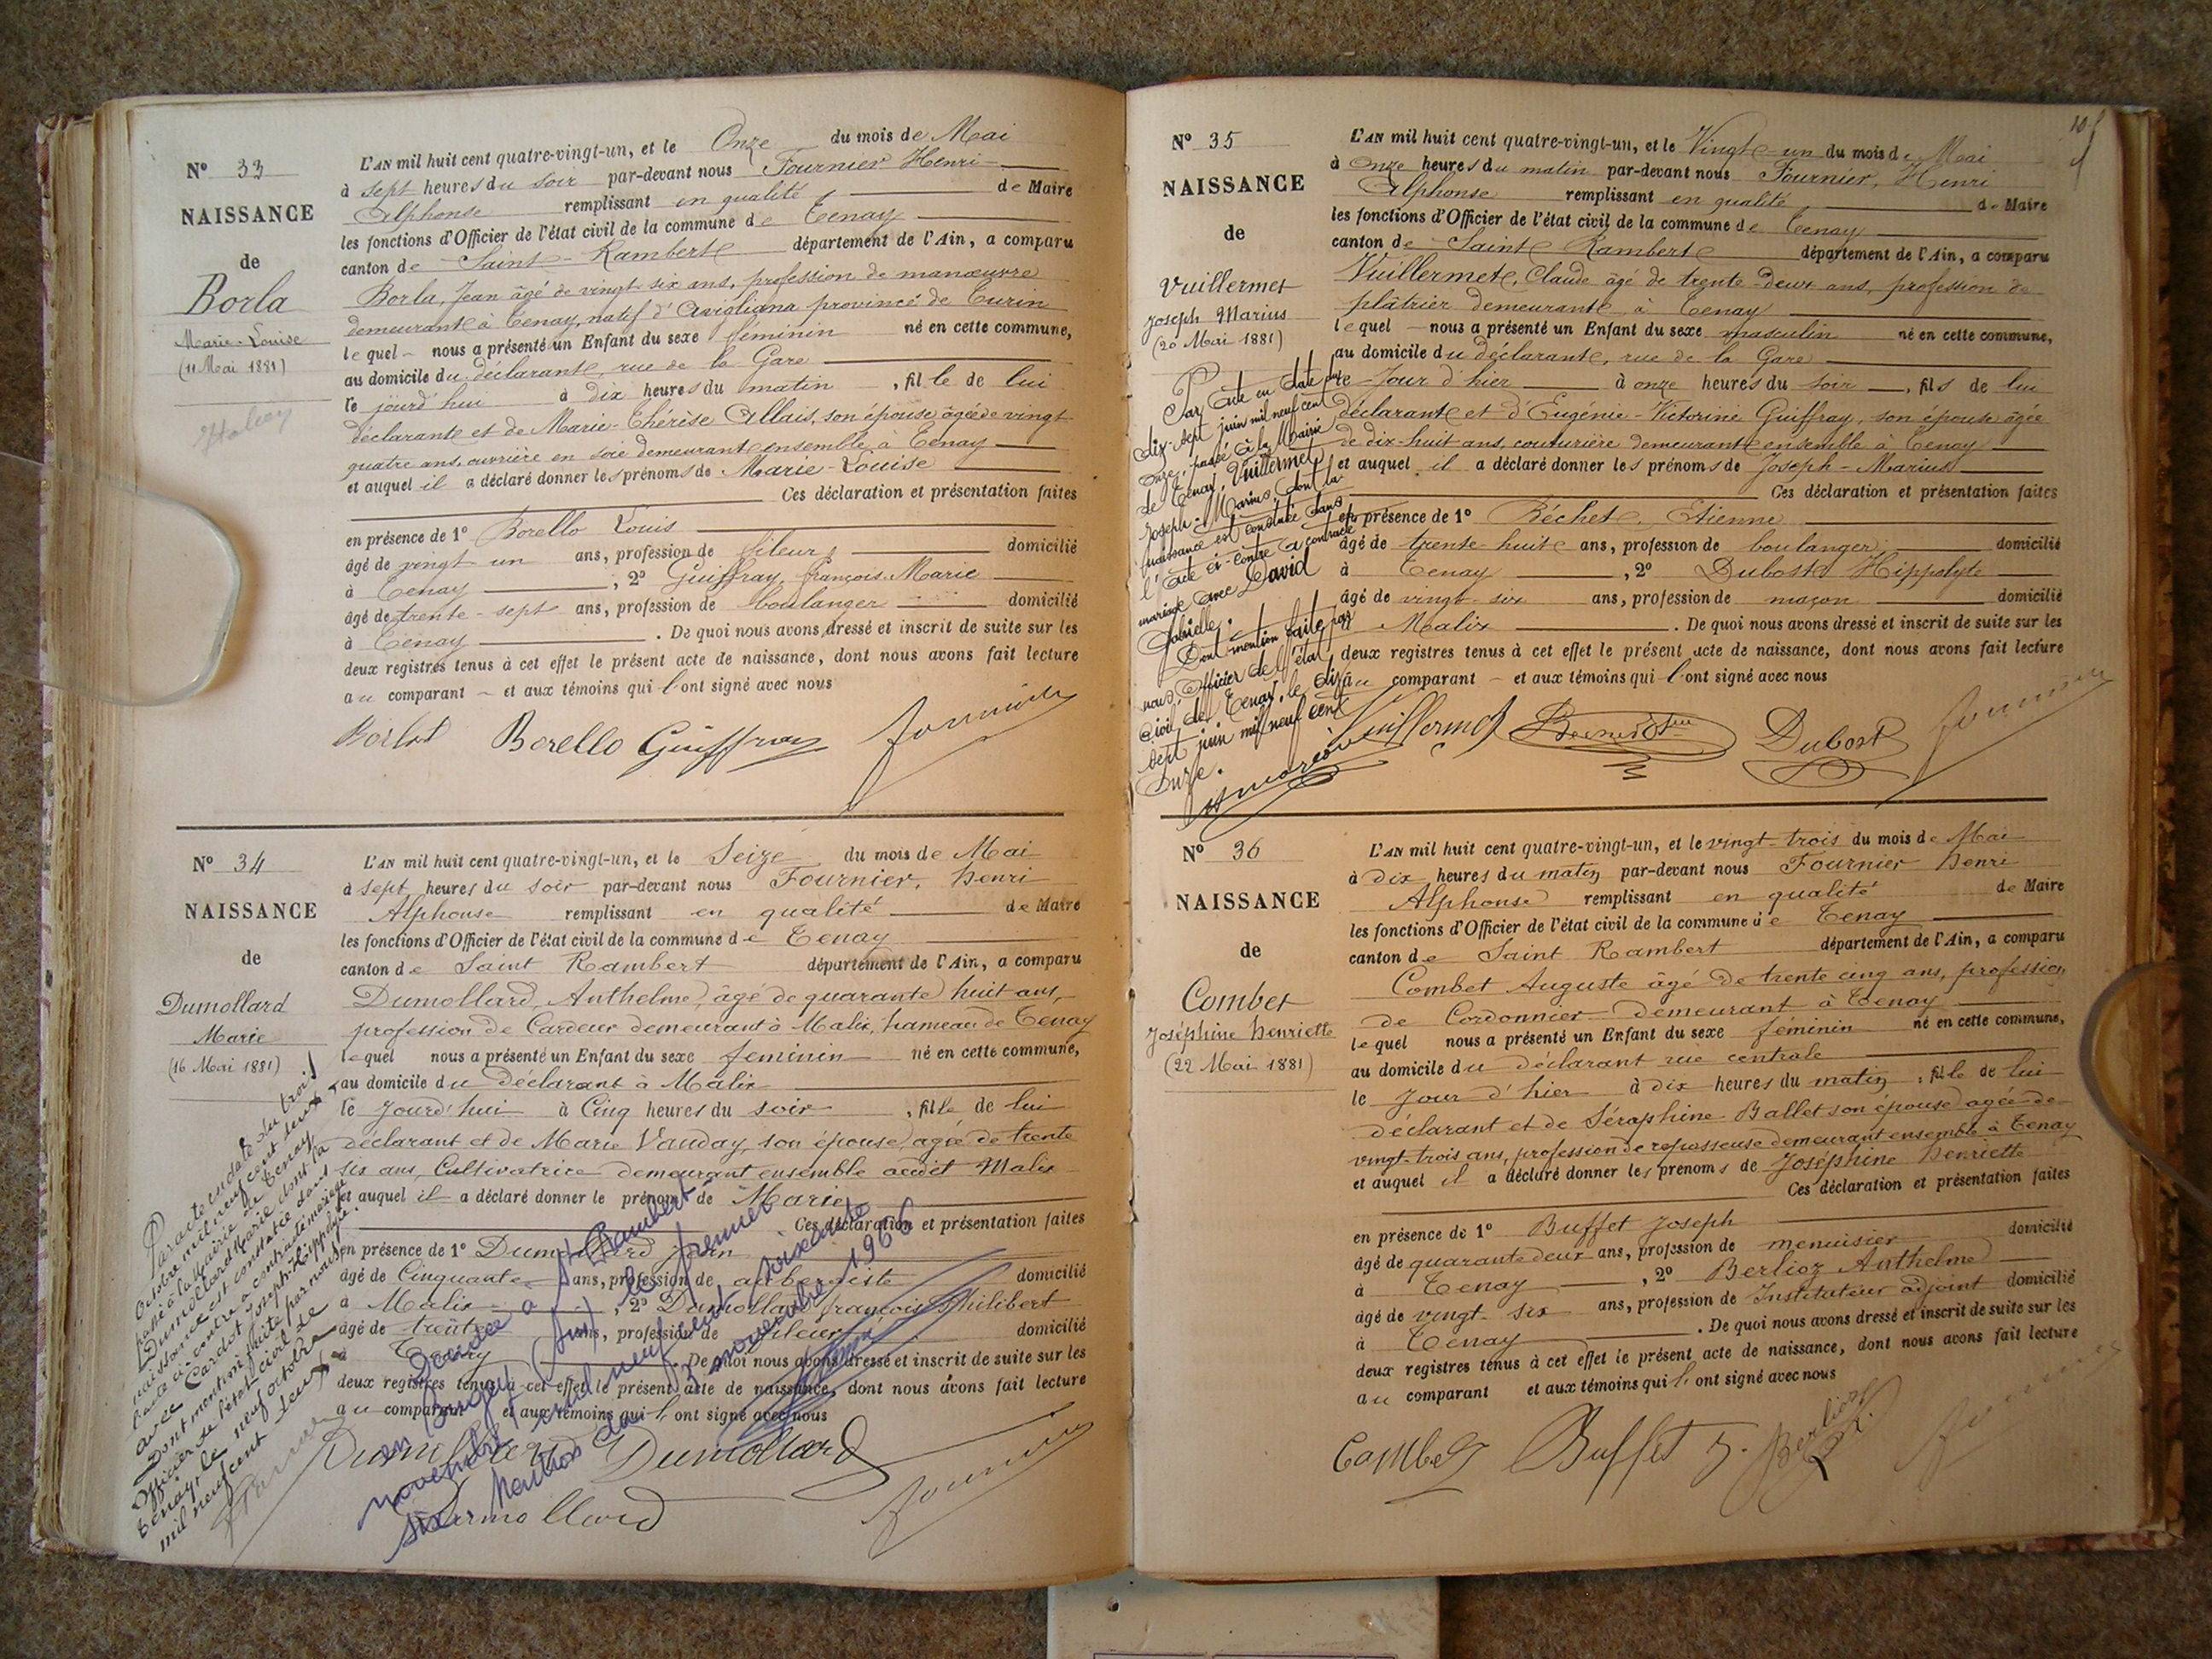 N° 33
NAISSANCE
de
Borla
Marie-Louise
(11 Mai 1881)
L'AN mil huit cent quatre-vingt-un, et le Onze du mois de Mai
à sept heures du soir par-devant nous Fournier Henri
Alphonse remplissant en qualité de Maire
les fonctions d'Officier de l'état civil de la commune de Tenay
canton de Saint-Rambert département de l'Ain, a comparu
Borla, Jean âgé de vingt-six ans, profession de manœuvre
demeurant à Tenay, natif d'Avigliana province de Turin
lequel nous a présenté un Enfant du sexe féminin né en cette commune,
au domicile du déclarant, rue de la Gare
le jourd'hui à dix heures du matin, fille de lui
déclarant et de Marie-Thérèse Allais, son épouse âgée de vingt
quatre ans, ouvrière en soie demeurant ensemble à Tenay
et auquel il a déclaré donner les prénoms de Marie-Louise
Ces déclaration et présentation faites
en présence de 1° Borello Louis
âgé de vingt un ans, profession de fileur domicilié
à Tenay, 2° Guiffray, François-Marie
âgé de trente-sept ans, profession de boulanger domicilié
à Tenay. De quoi nous avons dressé et inscrit de suite sur les
deux registres tenus à cet effet le présent acte de naissance, dont nous avons fait lecture
au comparant et aux témoins qui l'ont signé avec nous
Borello Guiffray Fournier
N° 34
NAISSANCE
de
Dumollard
Marie
(16 Mai 1881)
Par acte en date du trois
Octobre mil neuf cent deux,
passé à la Mairie de Tenay,
Dumollard Marie dont la
naissance est constatée dans
l'acte ci-contre a contracté mariage
avec Cardot Joseph-Hippolyte.
Dont mention faite par nous,
Officier de l'état civil de
Tenay, le neuf octobre
mil neuf cent deux.
L'AN mil huit cent quatre-vingt-un, et le Seize du mois de Mai
à sept heures du soir par-devant nous Fournier, Henri
Alphonse remplissant en qualité de Maire
les fonctions d'Officier de l'état civil de la commune de Tenay
canton de Saint Rambert département de l'Ain, a comparu
Dumollard, Anthelme, âgé de quarante huit ans,
profession de Cardeur demeurant à Malix, hameau de Tenay
lequel nous a présenté un Enfant du sexe feminin né en cette commune,
au domicile du Déclarant à Malix
le jourd'hui à Cinq heures du soir, fille de lui
déclarant et de Marie Vauday, son épouse, agée de trente
six ans, Cultivatrice demeurant ensemble audit Malix
et auquel il a déclaré donner le prénom de Marie
Ces déclaration et présentation faites
en présence de 1° Dumollard Jean
âgé de Cinquante ans, profession de aubergiste domicilié
à Malix, 2° Dumollard françois Philibert
âgé de trente ans, profession de fileur domicilié
à Tenay. De quoi nous avons dressé et inscrit de suite sur les
deux registres tenus à cet effet le présent acte de naissance, dont nous avons fait lecture
au comparant et aux témoins qui l'ont signé avec nous
Décédée à St Rambert
en Bugey (Ain) le premier
novembre mil neuf cent soixante
six Mention du 3 novembre 1966
Dumollard Dumollard
Dumollard Fournier
N° 35
NAISSANCE
de
Vuillermet
Joseph Marius
(20 Mai 1881)
Par acte en date du
dix-sept juin mil neuf cent
onze, passé à la Mairie
de Tenay, Vuillermet
Joseph-Marius, dont la
naissance est constatée dans
l'acte ci-contre a contracté
mariage avec David
Gabrielle.
Dont mention faite par
nous, Officier de l'état
civil de Tenay, le dix
sept juin mil neuf cent
onze.
L'AN mil huit cent quatre-vingt-un, et le Vingt-un du mois de Mai
à Onze heures du matin par-devant nous Fournier, Henri
Alphonse remplissant en qualité de Maire
les fonctions d'Officier de l'état civil de la commune de Tenay
canton de Saint Rambert département de l'Ain, a comparu
Vuillermet, Claude âgé de trente-deux ans, profession de
plâtrier demeurant à Tenay
lequel nous a présenté un Enfant du sexe masculin né en cette commune,
au domicile du déclarant, rue de la Gare
le Jour d'hier à onze heures du soir, fils de lui
déclarant et d'Eugénie-Victorine Guiffray, son épouse âgée
de dix-huit ans, couturière demeurant ensemble à Tenay
et auquel il a déclaré donner les prénoms de Joseph-Marius
Ces déclaration et présentation faites
en présence de 1° Béchet, Etienne
âgé de trente-huit ans, profession de boulanger domicilié
à Tenay, 2° Dubost, Hippolyte
âgé de vingt-six ans, profession de maçon domicilié
Malix. De quoi nous avons dressé et inscrit de suite sur les
deux registres tenus à cet effet le présent acte de naissance, dont nous avons fait lecture
au comparant et aux témoins qui l'ont signé avec nous
Vuillermet Dubost Fournier
N° 36
NAISSANCE
de
Combet
Joséphine Henriette
(22 Mai 1881)
L'AN mil huit cent quatre-vingt-un, et le vingt-trois du mois de Mai
à dix heures du matin par-devant nous Fournier Henri
Alphonse remplissant en qualité de Maire
les fonctions d'Officier de l'état civil de la commune de Tenay
canton de Saint Rambert département de l'Ain, a comparu
Combet Auguste âgé de trente cinq ans, profession
de Cordonnier demeurant à Tenay
lequel nous a présenté un Enfant du sexe féminin né en cette commune,
au domicile du déclarant rue centrale
le Jour d'hier à dix heures du matin, fille de lui
déclarant et de Séraphine Ballet son épouse agée de
vingt-trois ans, profession de repasseuse demeurant ensemble à Tenay
et auquel il a déclaré donner les prénoms de Joséphine Henriette
Ces déclaration et présentation faites
en présence de 1° Buffet Joseph
âgé de quarante deux ans, profession de menuisier domicilié
à Tenay, 2° Berlioz Anthelme
âgé de vingt-six ans, profession de Instituteur adjoint domicilié
à Tenay. De quoi nous avons dressé et inscrit de suite sur les
deux registres tenus à cet effet le présent acte de naissance, dont nous avons fait lecture
au comparant et aux témoins qui l'ont signé avec nous
Combet Buffet J. Berlioz Fournier